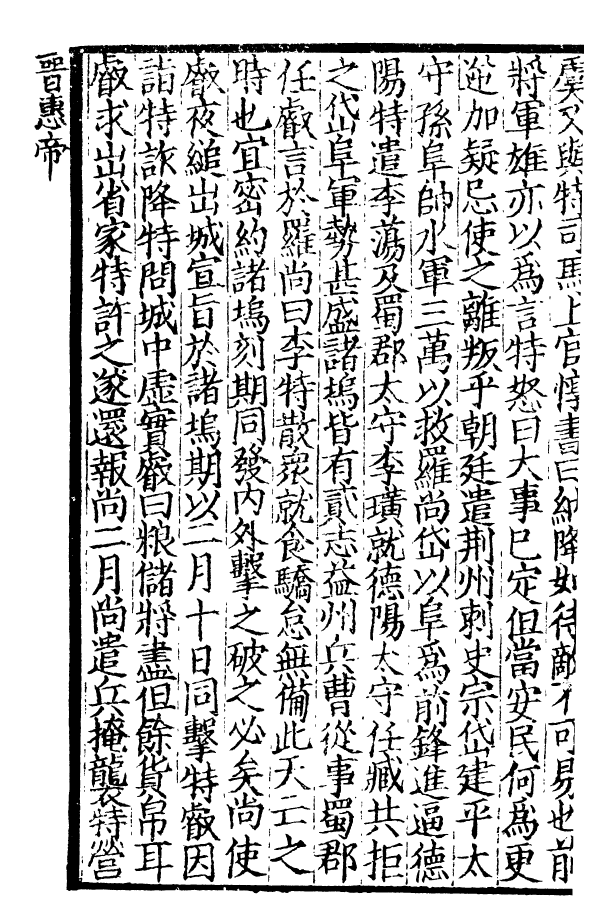 虔又與特司馬上官惇書曰納降如待敵不可易也前
將軍雄亦以爲言特怒曰大事已定但當安民何爲更
逆加疑忌使之離叛乎朝廷遣荆州刺史宗岱建平太
守孫阜帥水軍三萬以救羅尚岱以阜爲前鋒進逼德
陽特遣李蕩及蜀郡太守李璜就德陽太守任臧共拒
之岱阜軍勢甚盛諸塢皆有貳志益州兵曹從事蜀郡
任叡言於羅尚曰李特散衆就食驕怠無備此天亡之
時也宜密約諸塢刻期同發内外擊之破之必矣尚使
叡夜縋出城宣旨於諸塢期以二月十日同擊特叡因
詣特詐降特問城中虛實叡曰粮儲將盡但餘貨帛耳
叡求出省家特許之遂還報尚二月尚遣兵掩襲特營
晋惠帝